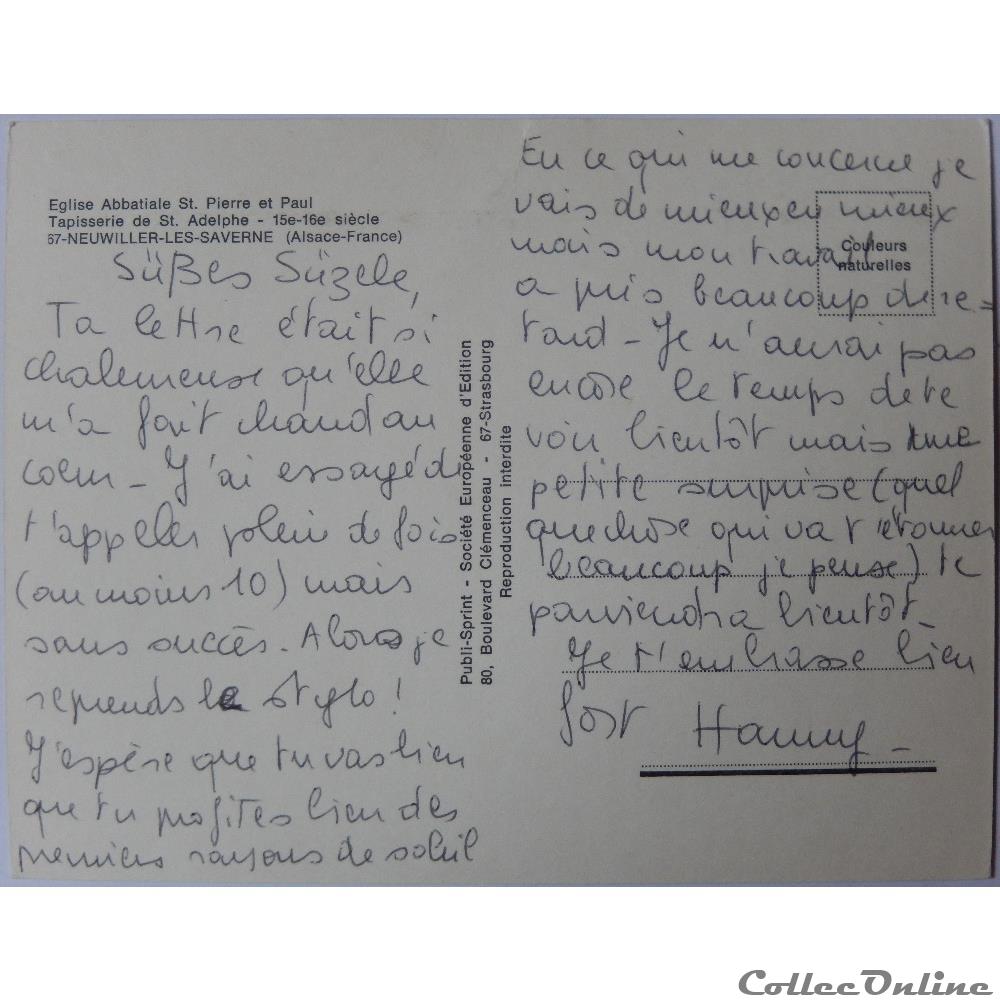 Eglise Abbatiale St. Pierre et Paul
Tapisserie de St. Adelphe - 15e-16e siècle
67-NEUWILLER-LES-SAVERNE (Alsace-France)
Süßes Süzele,
Ta lettre était si
chaleureuse qu'elle
m'a fait chaud au
coeur - J'ai essayé de
t'appeler plein de fois
(au moins 10) mais
sans succès. Alors je
reprends le stylo !
J'espère que tu vas bien
que tu profites bien des
premiers rayons de soleil
Publi-Sprint - Société Européenne d'Edition
80, Boulevard Clémenceau - 67-Strasbourg
Reproduction interdite
En ce qui me concerne je
vais de mieux en mieux
mais mon travail
a pris beaucoup de re=
tard - Je n'aurai pas
encore le temps de te
voir bientôt mais une
petite surprise (quel
que chose qui va t'étonner
beaucoup je pense) te
parviendra bientôt_
Je t'embrasse bien
fort Hanny_
Couleurs
naturelles
CollecOnline